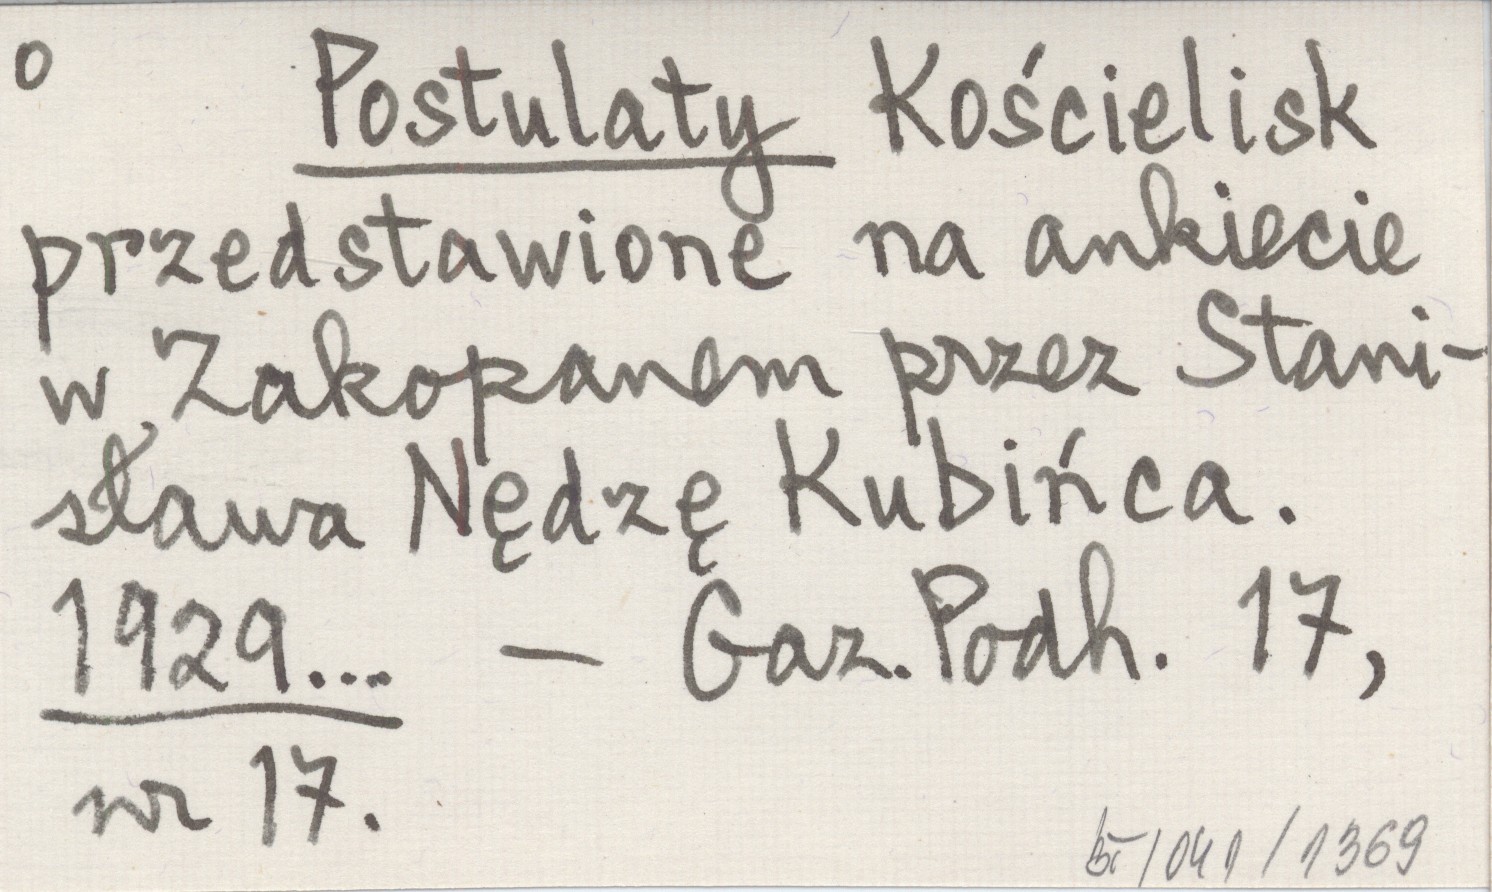 o Postulaty Kościelisk
przedstawione na ankiecie
w Zakopanem przez Stani-
sława Nędzę Kubińca.
1929... — Gaz. Podh. 17,
nr 17.
/041/1369